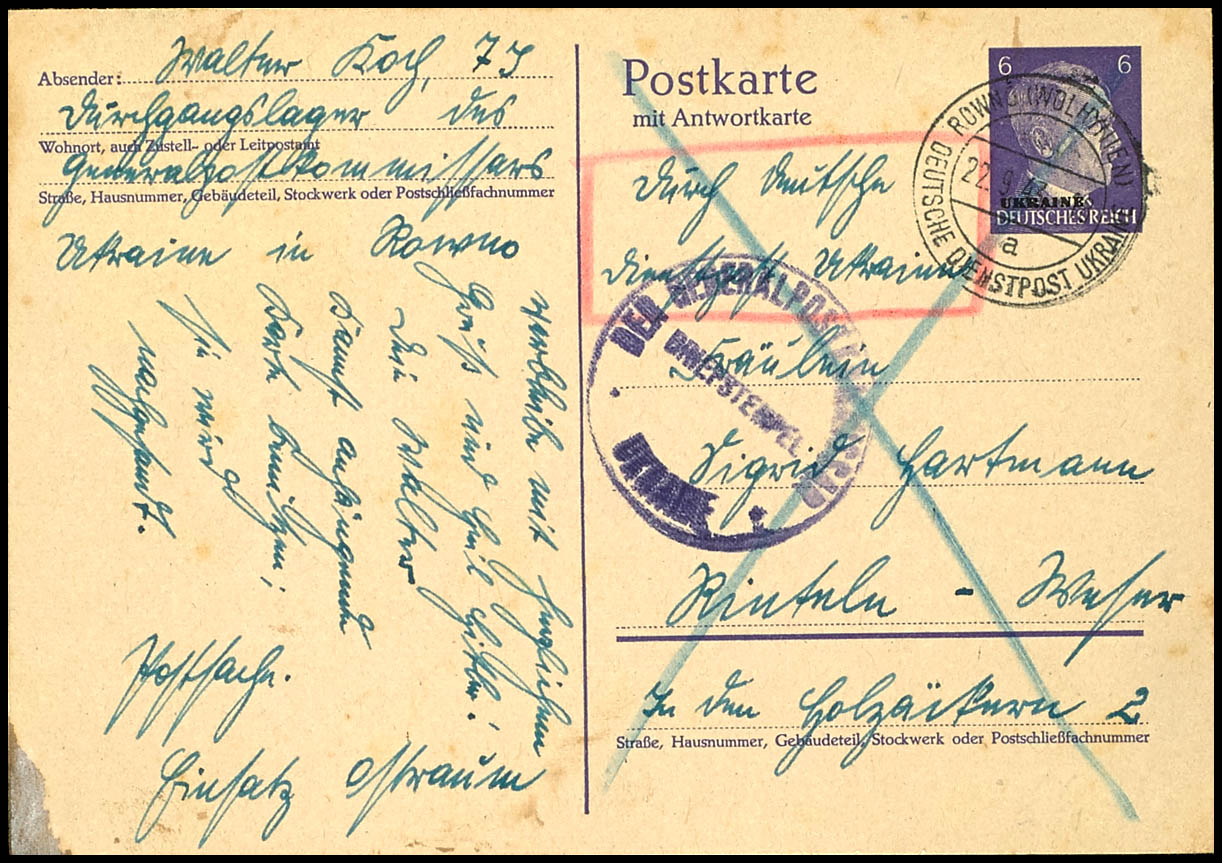 Absender: Walter Koch, 73
Durchgangslager des
Wohnort, auch Zustell- oder Leitpostamt
Generalpostkommissars
Straße, Hausnummer, Gebäudeteil, Stockwerk oder Postschließfachnummer
Ukraine in Rowno
verbleibe mit herzlichem
Gruß und Heil Hitler!
Dein Walter
Kannst anhängende
Karte benützen,
sie wird
nachgesandt.
Postsache.
Einsatz Ostraum
Postkarte
mit Antwortkarte
6 6
UKRAINE
DEUTSCHES REICH
ROWNO (WOLHYNIEN)
22.9.
a
DEUTSCHE DIENSTPOST UKRAINE
Durch Deutsche
Dienstpost Ukraine
DER GENERALPOSTKOMMISSAR
BRIEFSTEMPEL
UKRAINE
Fräulein
Sigrid Hartmann
Rinteln - Weser
In den Holzäckern 2
Straße, Hausnummer, Gebäudeteil, Stockwerk oder Postschließfachnummer